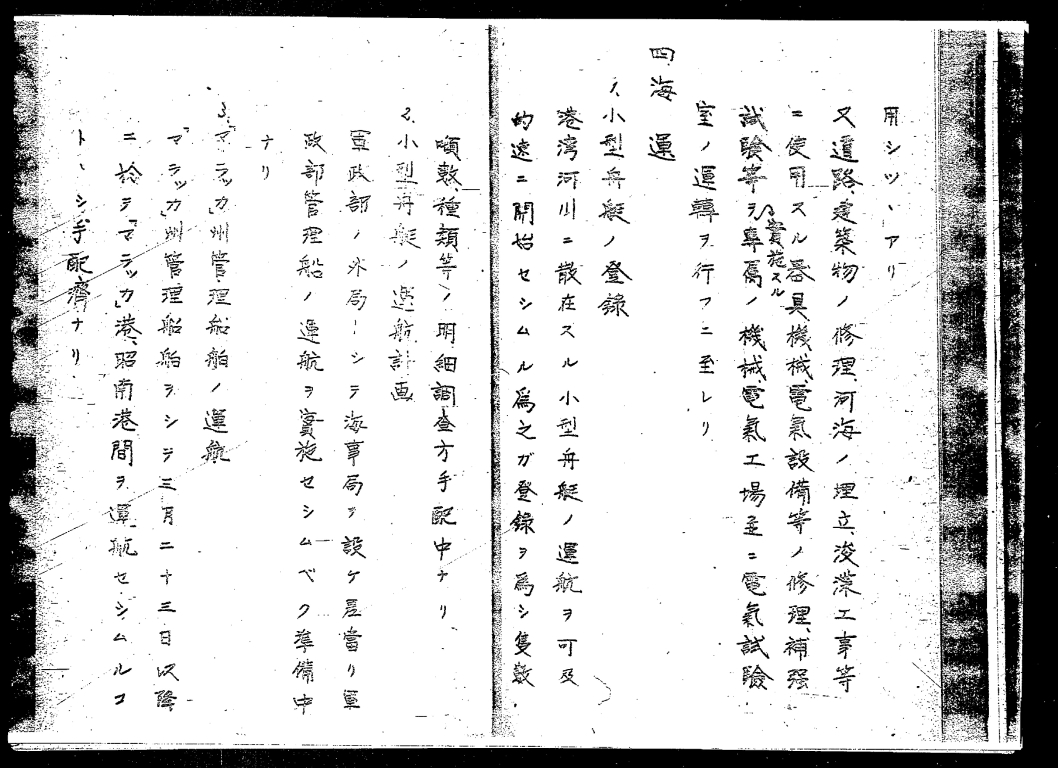 用シツヽアリ
又道路建築物ノ修理、河海ノ埋立、浚渫工事等
ニ使用スル器具機械、電氣設備等ノ修理、補强
試驗等ヲ實施スル專屬ノ機械、電氣工場並ニ電氣試驗
室ノ運轉ヲ行フニ至レリ
四 海運
1、小型舟艇ノ登錄
港湾河川ニ散在スル小型舟艇ノ運航ヲ可及
的速ニ開始セシムル爲之ガ登錄ヲ爲シ隻數
噸数、種類等ノ明細調査方手配中ナリ
2、小型舟艇ノ運航計画
軍政部ノ外局トシテ海事局ヲ設ケ差當リ軍
政部管理船ノ運航ヲ實施セシムベク準備中
ナリ
3、「マラッカ」州管理船舶ノ運航
「マラッカ」州管理船舶ヲシテ三月二十三日以降
ニ於テ「マラッカ」港、昭南港間ヲ運航セシムルコ
トヽシ手配濟ナリ